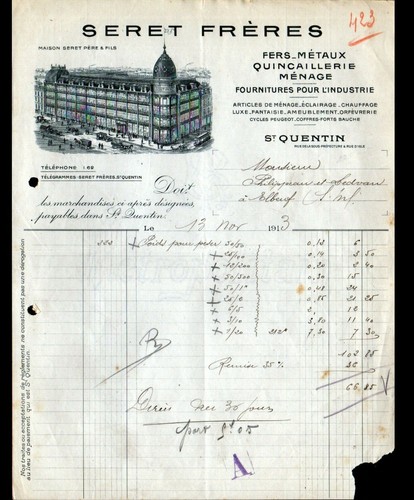 SERET FRÈRES
423
MAISON SERET PÈRE & FILS
FERS_MÉTAUX
QUINCAILLERIE
MÉNAGE
FOURNITURES POUR L'INDUSTRIE
ARTICLES DE MÉNAGE, ÉCLAIRAGE, CHAUFFAGE
LUXE, FANTAISIE, AMEUBLEMENT, ORFÈVRERIE
CYCLES PEUGEOT, COFFRES-FORTS BAUCHE
ST QUENTIN
RUE DE LA SOUS-PRÉFECTURE & RUE D'ISLE
TÉLÉPHONE 1 69
TÉLÉGRAMMES: SERET FRÈRES, ST QUENTIN
Doit
les marchandises ci après désignées,
payables dans St Quentin
Monsieur
à Elbeuf
Le 13 Nov 1913
Poids pour peser
0,18 6
0,14 3 50
0,20 2 40
0,30 15
0,48 24
0,85 21 25
2, 10
3,80 11 40
7,30 7 30
102 85
Remise 35 % 36
66,85
30 jours
A
Nos traites ou acceptations de règlements ne constituent pas une dérogation
au lieu de paiement qui est St Quentin.